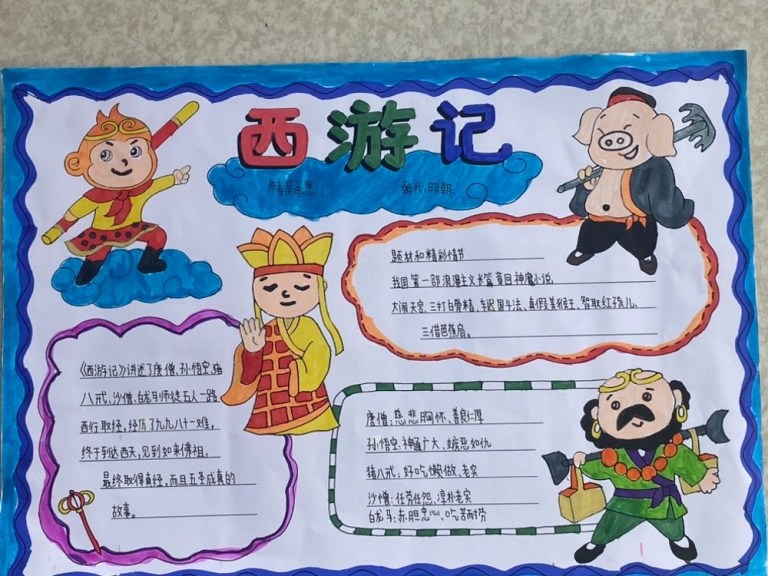 西游记
作者吴承恩 朝代:明朝
题材和精彩情节
我国第一部浪漫主义长篇章回神魔小说
大闹天宫、三打白骨精、车迟国斗法、真假美猴王、智取红孩儿、
三借芭蕉扇。
《西游记》讲述了唐僧、孙悟空、猪
八戒、沙僧、白龙马师徒五人一路
西行取经,经历了九九八十一难,
终于到达西天,见到如来佛祖,
最终取得真经,而且五圣成真的
故事。
唐僧:慈悲胸怀、善良仁厚
孙悟空:神通广大、嫉恶如仇
猪八戒:好吃懒做、老实
沙僧:任劳任怨、淳朴老实
白龙马:赤胆忠心、吃苦耐劳